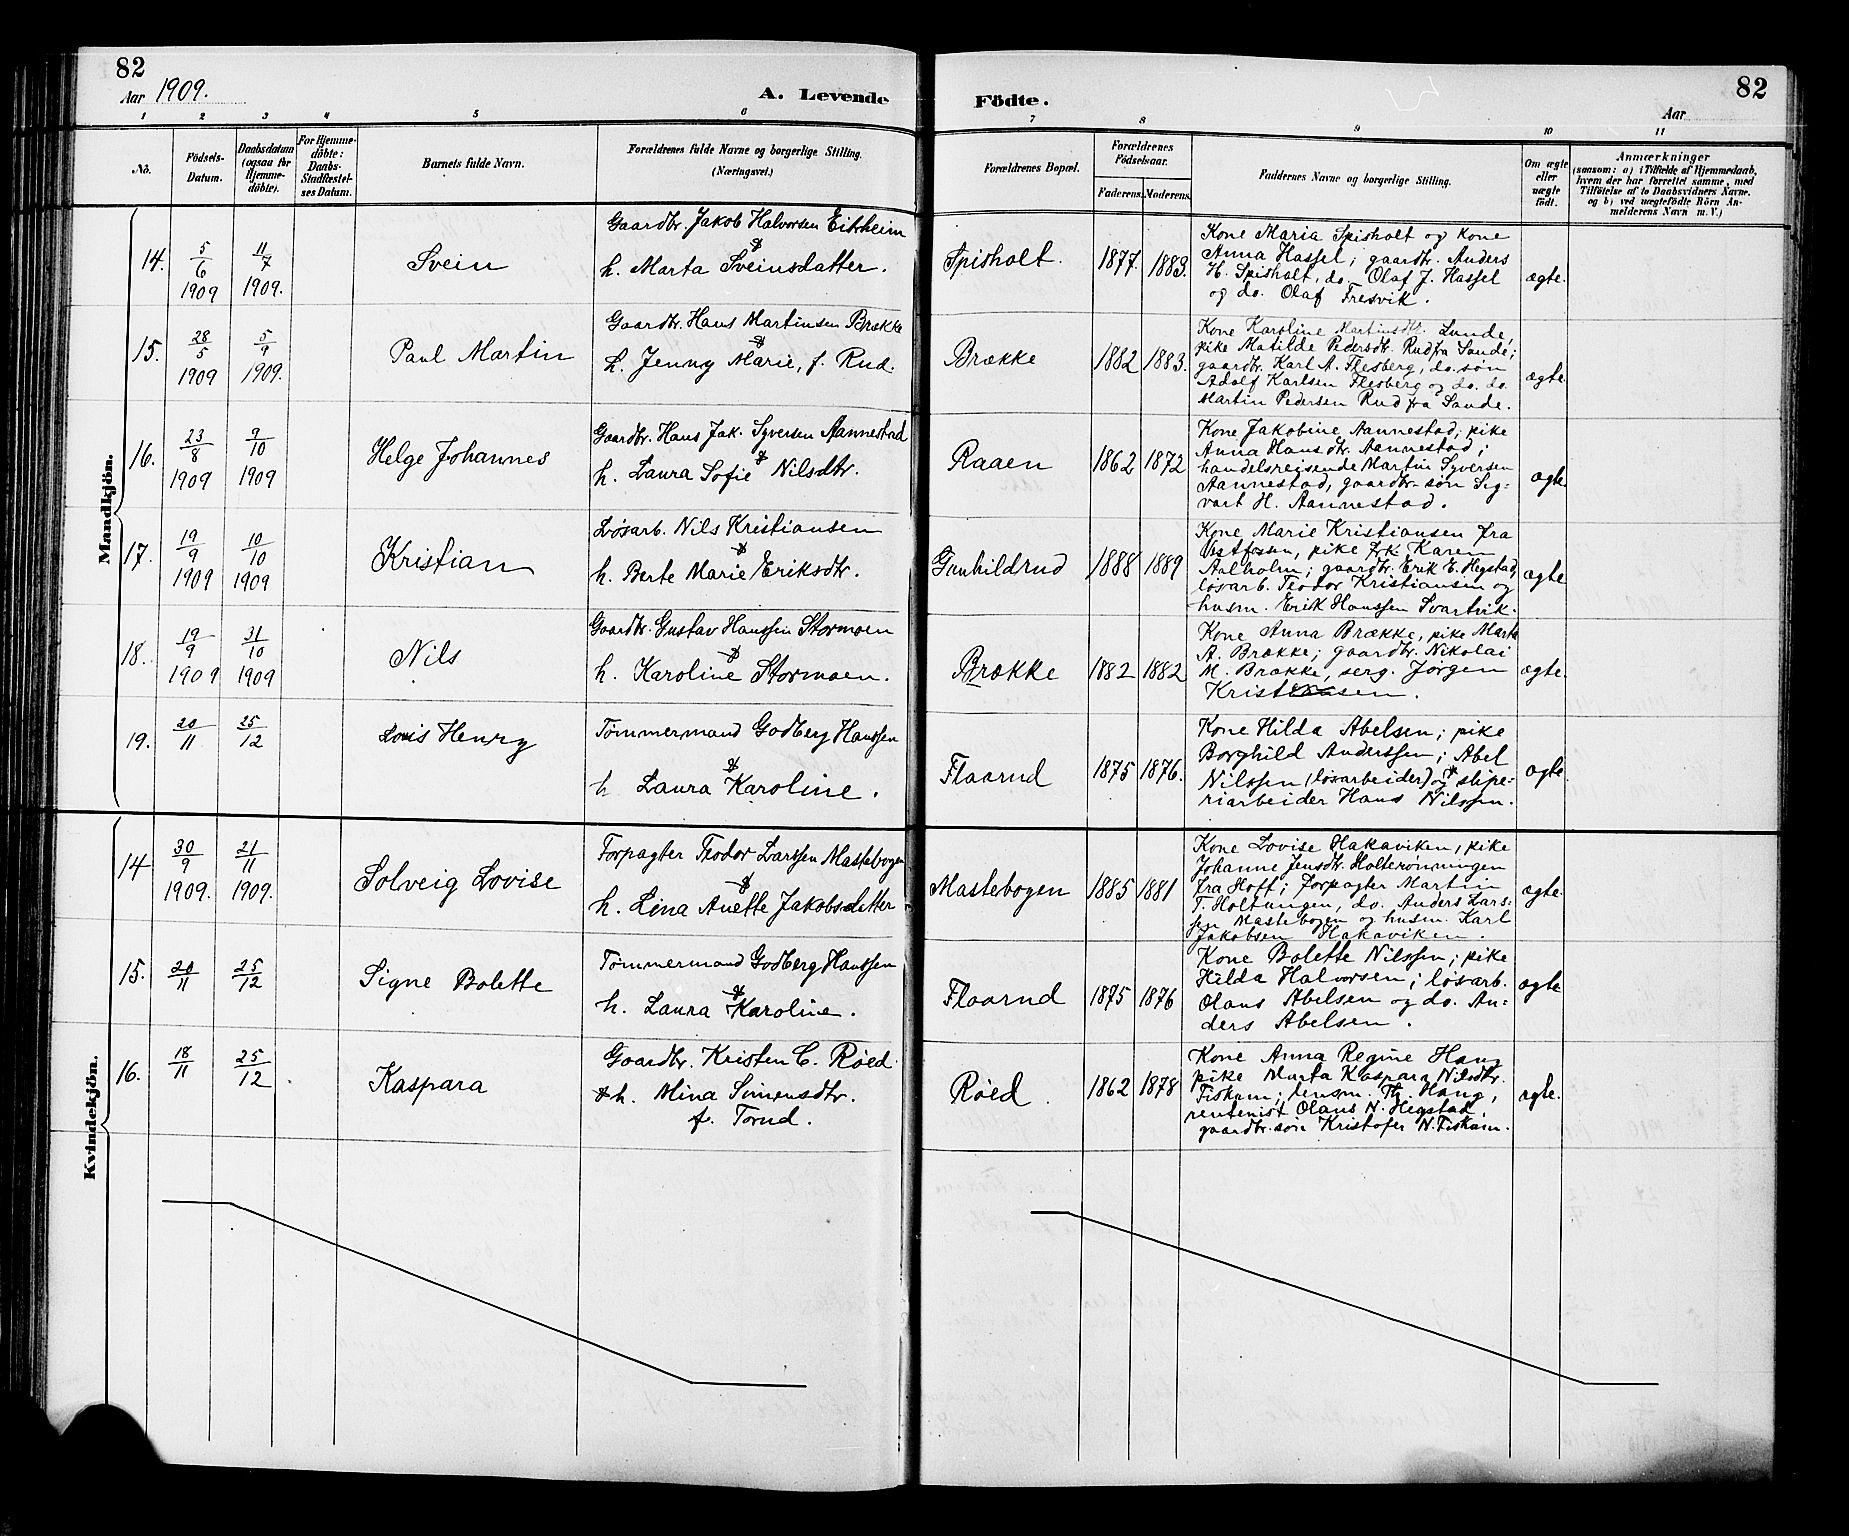 82
82
Aar 1909.
A. Levende
Födte.
Aar
1 2 3 4 5 6 7 8 9 10 11
No.
Födsels-
Datum.
Daabsdatum
(ogsaa for
Hjemme-
döbte).
For Hjemme-
döbte:
Daabs-
Stadfæstel-
ses Datum.
Barnets fulde Navn.
Forældrenes fulde Navne og borgerlige Stilling.
(Næringsvei.)
Forældrenes Bopæl.
Forældrenes
Födselsaar.
Faderens. Moderens.
Faddernes Navne og borgerlige Stilling.
Om ægte
eller
uægte
födt.
Anmærkninger
(saasom: a) i Tilfælde af Hjemmedaab,
hvem der har forrettet samme, med
Tilföielse af to Daabsvidners Navne,
og b) ved uægtefödte Börn An-
melderens Navn m. V.)
Mandkjön.
14.
5/6
1909
11/7
1909.
Svein
Gaardbr. Jakob Halvorsen Eikheim
&
h. Marta Sveinsdatter.
Spisholt.
1877.
1883.
Kone Maria Spisholt og kone
Anna Hassel; gaardbr. Anders
H. Spisholt, do. Olaf J. Hassel
og do. Olaf Fresvik.
ægte.
15.
28/5
1909
5/9
1909.
Paul Martin
Gaardbr. Hans Martinsen Brække
&
h. Jenny Marie, f. Rud.
Brække
1882
1883.
Kone Karoline Martinsdtr. Lunde,
pike Matilde Pedersdtr. Rud fra Sande;
gaardbr. Karl A. Flesberg, do. søn
Adolf Karlsen Flesberg og do. do.
Martin Pedersen Rud fra Sande.
ægte.
16.
23/8
1909
9/10
1909
Helge Johannes
Gaardbr. Hans Jak. Syversen Aannestad
&
h. Laura Sofie Nilsdtr.
Raaen
1862
1872
Kone Jakobine Aannestad, pike
Anna Hansdtr. Aannestad;
handelsreisende Martin Syversen
Aannestad, gaardbr. søn Sig-
vart H. Aannestad.
ægte.
17.
19/9
1909
10/10
1909
Kristian
Løsarb. Nils Kristiansen
&
h. Berte Marie Eriksdtr.
Gunhildrud
1888
1889
Kone Marie Kristiansen fra
Vestfossen, pike frk. Karen
Aalholm; gaardbr. Erik E. Hegstad,
løsarb. Teodor Kristiansen og
husm. Erik Hanssen Svartvik.
ægte
18.
19/9
1909
31/10
1909
Nils
Gaardbr. Gustav Hanssen Stormoen
&
h. Karoline Stormoen.
Brække
1882
1882
Kone Anna Brække, pike Marta
A. Brække; gaardbr. Nikolai
M. Brække, serg. Jørgen
Kristensen.
ægte.
19.
20/11
25/12
Lovis Henry
Tømmermand Godberg Hanssen
&
h. Laura Karoline.
Flaarud
1875
1876.
Kone Hilda Abelsen; pike
Borghild Anderssen; Abel
Nilssen (løsarbeider) og slipe-
riarbeider Hans Nilssen.
ægte
Kvindekjön.
14
30/9
1909.
21/11
1909.
Solveig Lovise
Forpagter Teodor Larssen Mastebogen
&
h. Lina Anette Jakobsdatter
Mastebogen
1885
1881
Kone Lovise Hakaviken, pike
Johanne Jensdtr. Holterønningen
fra Hoff; forpagter Martin
T. Holtungen, do. Anders Lars-
sen Mastebogen og husm. Karl
Jakobsen Hakaviken.
ægte.
15.
20/11
25/12
Signe Bolette
Tømmermand Godberg Hanssen
&
h. Laura Karoline.
Flaarud
1875
1876
Kone Bolette Nilssen; pike
Hilda Halvorsen; løsarb.
Olaus Abelsen og do. An-
ders Abelsen.
ægte
16.
18/11
25/12
Kaspara
Gaardbr. Kristen C. Røed
& h. Mina Simensdtr.
f. Torud.
Røed.
1862
1878
Kone Anna Regine Haug
pike Marta Kaspara Nilsdtr.
Fiskum; lensm. Th. Haug,
rentenist Olaus N. Hegstad,
gaardbr. søn Kristofer N. Fiskum.
ægte.